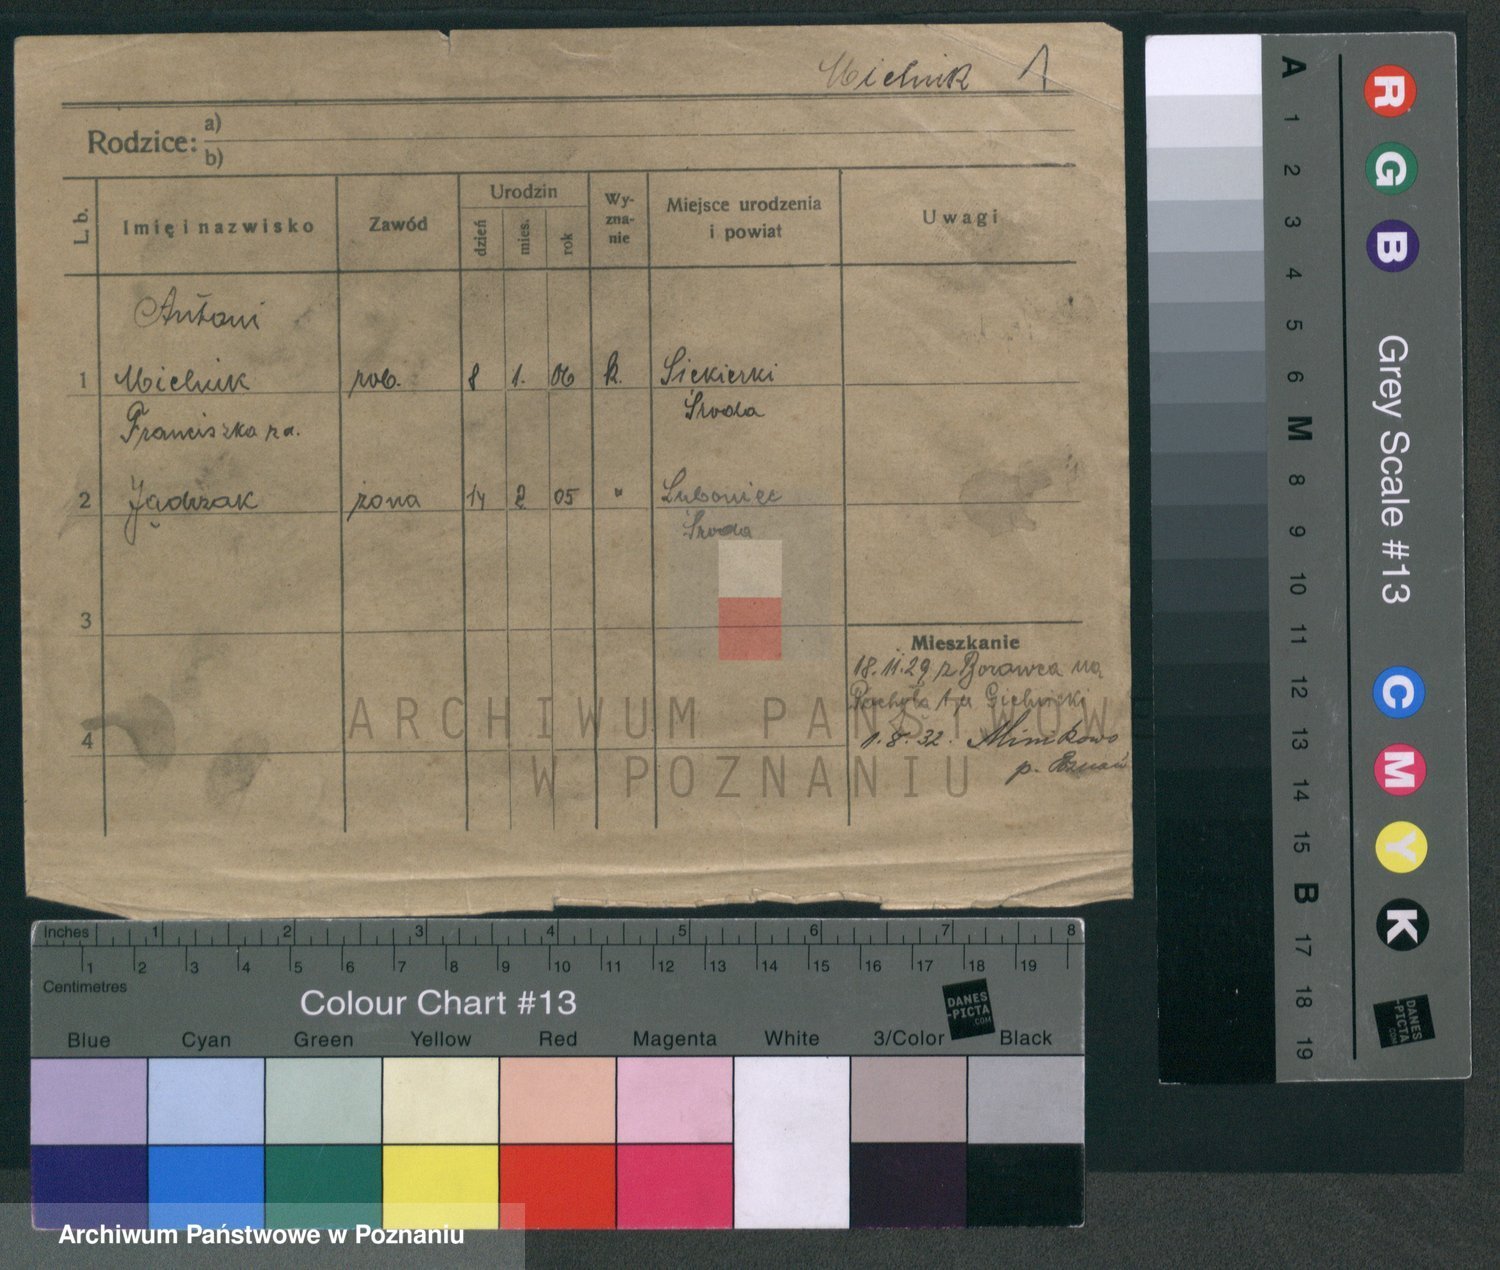 Mielnik 1
Rodzice: a)
b)
L. b. Imię i nazwisko Zawód Urodzin dzień mies. rok Wy-zna-nie Miejsce urodzenia i powiat Uwagi
Antoni
1 Mielnik rob. 8 1. 06 k. Siekierki
Środa
Franciszka z d.
2 Jądrzak żona 14 2 05 " Luboniec
Środa
3
Mieszkanie
18.11.29 z Borówca na
4
1.8.32. Minikowo
p. Poznań
ARCHIWUM PAŃSTWOWE
W POZNANIU
Inches 1 2 3 4 5 6 7 8
1 2 3 4 5 6 7 8 9 10 11 12 13 14 15 16 17 18 19
Centimetres
Colour Chart #13
DANES
-PICTA
.COM
Blue Cyan Green Yellow Red Magenta White 3/Color Black
Archiwum Państwowe w Poznaniu
R G B Grey Scale #13 C M Y K
A 1 2 3 4 5 6 M 8 9 10 11 12 13 14 15 B 17 18 19
DANES
-PICTA
.COM